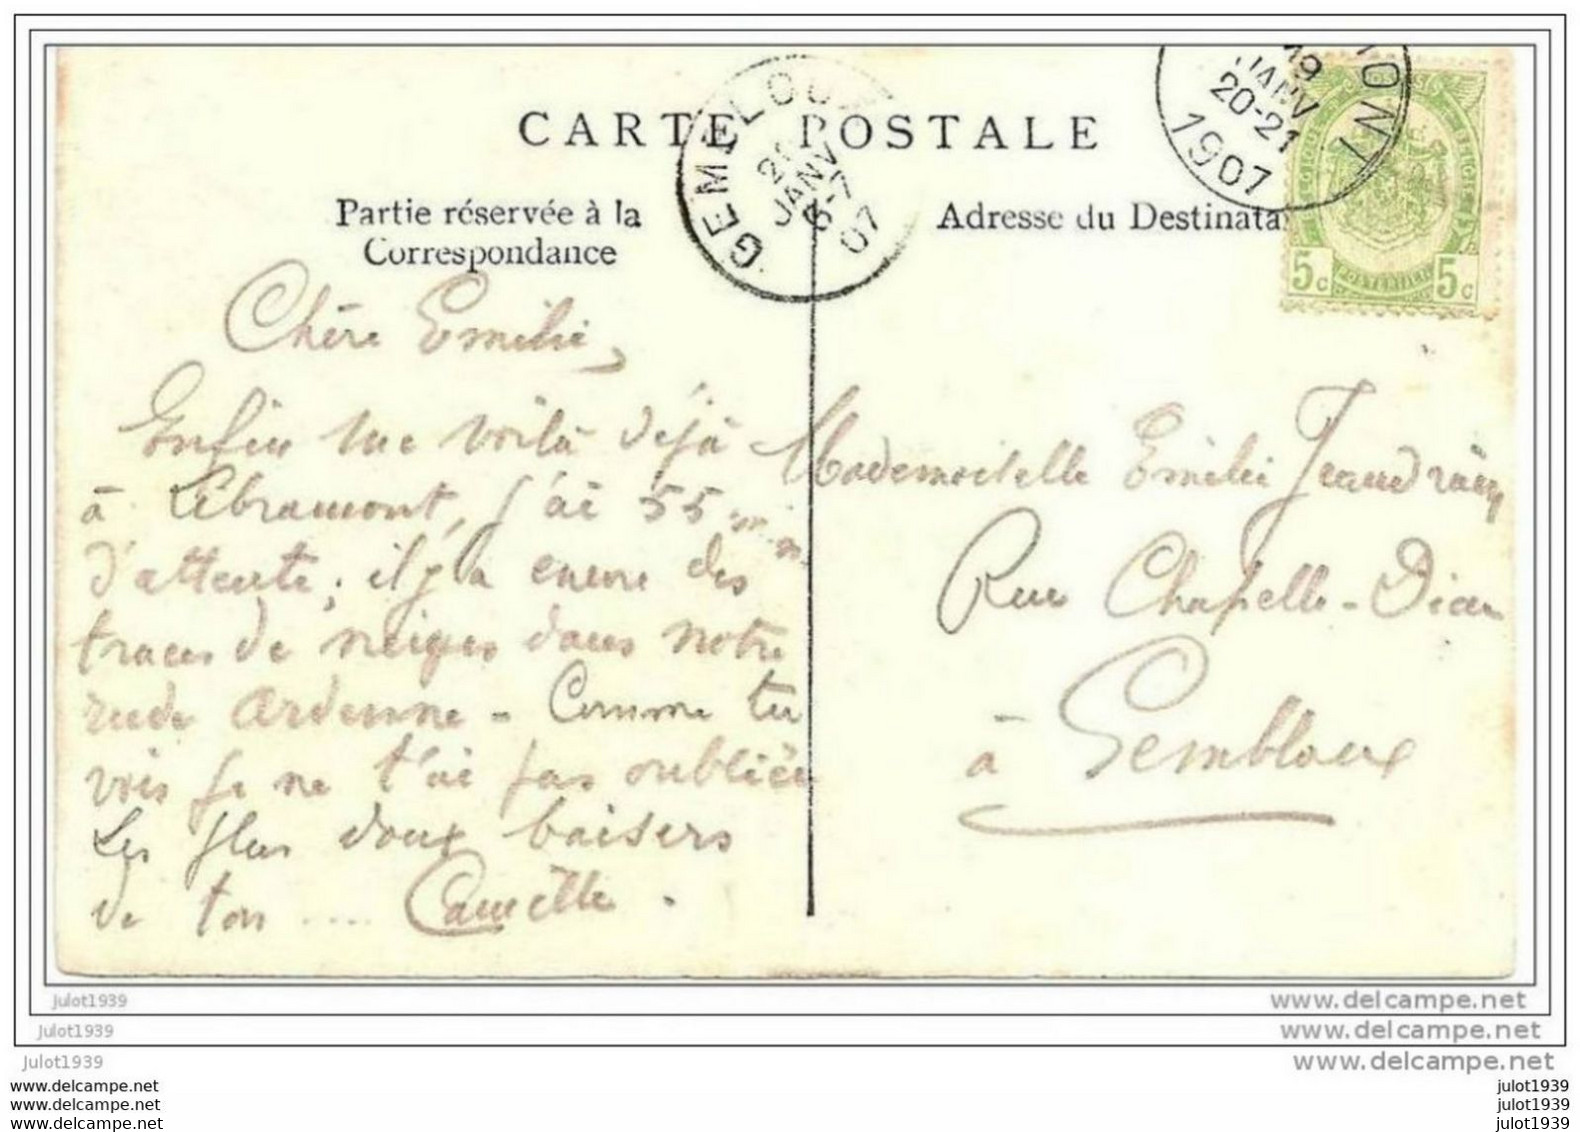 CARTE POSTALE
Partie réservée à la
Correspondance
Adresse du Destinata
GEMBLOUX
20
JANV
6-7
07
19
JANV
20-21
1907
ONT
5c
POSTERIJEN
5c
Chère Emilie,
Enfin me voilà déjà
à Libramont, j'ai 55 min
d'attente; il y a encore des
traces de neiges dans notre
rude Ardenne - Comme tu
vois je ne t'ai pas oubliée
Les plus doux baisers
de ton .... Camille.
Mademoiselle Emilie Jeandrain
Rue Chapelle-Dieu
à Gembloux
julot1939
www.delcampe.net
julot1939
www.delcampe.net
julot1939
www.delcampe.net
www.delcampe.net
julot1939
www.delcampe.net
julot1939
www.delcampe.net
julot1939